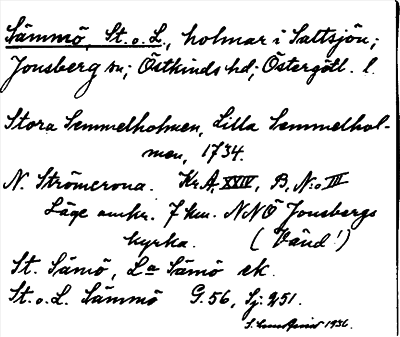 Sämmö, St. o. L., holmar i Saltsjön;
Jonsberg sn; Östkinds hd; Östergötl. l.
Stora Semmelholmen, Lilla Semmelhol-
men, 1734.
N. Strömcrona. Kr. A, XXIV, B, N:o III
Läge omkr. 7 km. NNÖ Jonsbergs
kyrka. (Vänd!)
St. Sämö, La Sämö ek.
St. o. L. Sämmö G. 56, Sj. 251.
1936.